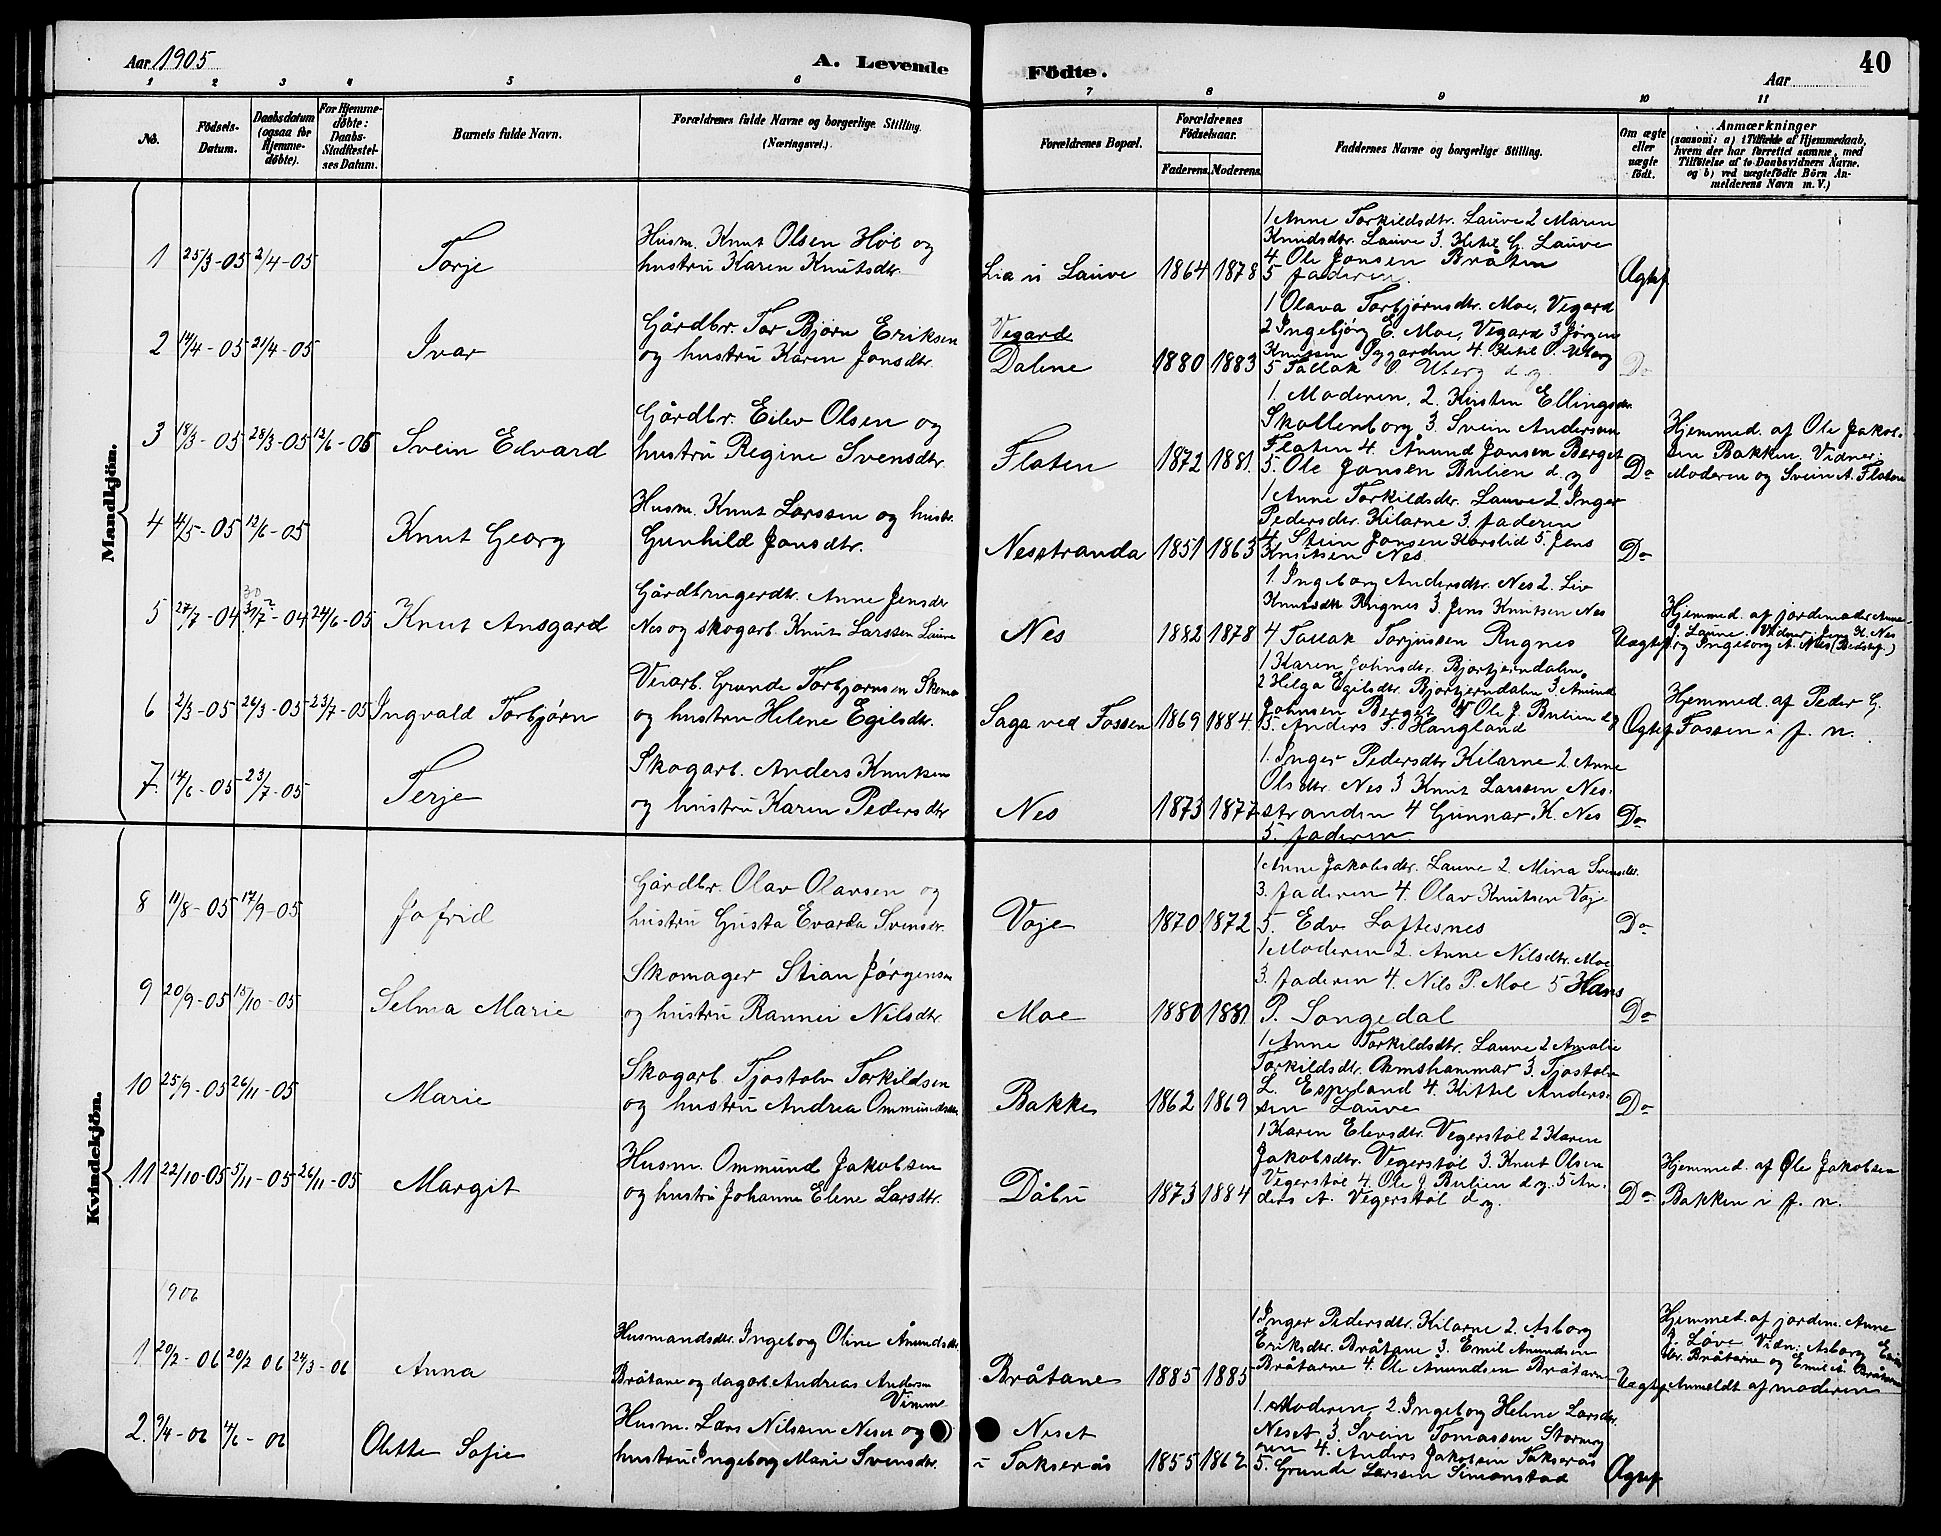 Aar 1905
A. Levende
Födte.
Aar
40
1 2 3 4 5 6 7 8 9 10 11
No.
Födsels-
Datum.
Daabsdatum
(ogsaa for
Hjemme-
döbte).
For Hjemme-
döbte:
Daabs-
Stadfæstel-
ses Datum.
Barnets fulde Navn.
Forældrenes fulde Navne og borgerlige Stilling.
(Næringsvei.)
Forældrenes Bopæl.
Forældrenes
Födselsaar.
Faderens. Moderens.
Faddernes Navne og borgerlige Stilling.
Om ægte
eller
uægte
födt.
Anmærkninger
(saasom: a) i Tilfælde af Hjemmedaab,
hvem der har forrettet samme, med
Tilföielse af to Daabsvidners Navne,
og b) ved uægtefödte Börn An-
melderens Navn m. V.)
Mandkjön.
1 25/3-05 2/4-05 Torje
Husm. Knut Olsen Hol og
hustru Karen Knutsdtr.
Lia u Lauve 1864 1878
1 Anne Torkildsdtr. Lauve 2 Maren
Knudsdtr. Lauve 3. Ketil G. Lauve
4. Ole Jonsen Bråten
5 faderen.
Ægtef
2 14/4-05 21/4-05 Ivar
Gårdbr. Tor Bjørn Eriksen
og hustru Karen Jonsdtr.
Vegard
Dalene 1880 1883
1 Olava Torbjørnsdtr. Moe, Vegard
2 Ingebjørg E. Moe, Vegard 3 Jørgen
Knutsen 4. Ketil O. Uberg
5 Tallak O. Uberg d. y.
Do
3 18/3-05 28/3-05 12/6-05 Svein Edvard
Gårdbr. Eilev Olsen og
hustru Regine Svensdtr.
Flaten 1872 1881.
1. Moderen, 2. Kirsten Ellingsdtr.
Skollenborg 3. Svein Andersen
Flaten 4. Ånund Jonsen Berget
5. Ole Jonsen Bulien d. y
Do
Hjemmed. af Ole Jakob-
sen Bakken. Vidner:
Moderen og Svein A. Flaten
4 4/5-05 12/6-05 Knut Georg
Husm. Knut Larssen og hustr.
Gunhild Jonsdtr.
Nesstranda 1851 1863
1 Anne Torkildsdtr. Lauve 2 Inger
Pedersdtr. Kilarne 3. faderen
4. Stein Jonsen 5. Jens
Knutsen Nes
Do
5 27/7-04 30 31/7-04 24/6-05 Knut Ansgard
Gårdbrugerdtr. Anne Jensdtr
Nes og skogarb. Knut Larssen Lauve
Nes 1882 1878
1. Ingeborg Andersdtr. Nes 2. Liv
Knutsdtr Rugnes 3. Jens Knutsen Nes
4 Tallak Torjussen Rugnes
Uægtef
Hjemmed. af jordemoder Anne
J. Lauve. Vidner: Jens K. Nes
og Ingeborg A. Nes (Bedstef.)
6 2/3-05 26/3-05 23/7-05 Ingvald Torbjørn
Veiarb. Grunde Torbjørnsen
og hustru Helene Egilsdtr.
Saga ved Fossen 1869 1884.
1 Karen Johnsdtr. Bjortjerndalen
2 Helga Egilsdtr. Bjortjerndalen 3. Ånund
Johnsen Berget 4 Ole J. Bulien d y
5. Anders T. Haugland
Ægtef
Hjemmed. af Peder G.
Fossen i f. n.
7. 14/6-05 23/7-05 Terje
Skogarb. Anders Knutsen
og hustru Karen Pedersdtr
Nes 1873 1877
1. Inger Pedersdtr Kilarne 2 Anne
Olsdtr. Nes 3 Knut Larssen Nes-
stranden 4 Gunnar K. Nes
5. faderen
Do
Kvindekjön.
8 11/8-05 17/9-05 Jofrid
Gårdbr. Olav Olavsen og
hustru Gusta Evarda Svensdtr.
Voje 1870 1872
1 Anne Jakobsdtr. Lauve 2 Mina Svensdtr.
3. faderen 4. Olav Knutsen Voje
5. Edv Loftesnes
Do
9 20/9-05 15/10-05 Selma Marie
Skomager Stian Jørgensen
og hustru Rannei Nilsdtr
Moe 1880 1881
1 Moderen 2. Anne Nilsdtr. Moe
3. faderen 4. Nils P. Moe 5 Hans
P. Songedal
Do
10 25/9-05 26/11-05 Marie
Skogarb Tjostolv Torkildsen
og hustru Andrea Ommundsdtr.
Bakke 1862 1869
1 Anne Torkildsdtr. Lauve 2 Amalie
Torkildsdtr. Omshammar 3. Tjostolv
L. Espeland 4. Kittel Anders-
sen Lauve
Do
11 22/10-05 5/11-05 26/11-05 Margit
Husm. Ommund Jakobsen
og hustru Johanne Elene Larsdtr.
Dåbu 1873 1884
1 Karen Elevsdtr. Vegerstøl 2 Karen
Jakobsdtr. Vegerstøl 3. Knut Olsen
Vegerstøl 4. Ole J Bulien d y. 5 An-
ders A. Vegerstøl d y.
Do
Hjemmed. af Ole Jakobsen
Bakken i f. n.
1906
1. 20/2-06 20/2 06 24/3-06 Anna
Husmandsdtr. Ingeborg Oline Ånundsdtr
Bråtane og dagarb. Andreas Andersen
Vimme
Bråtane 1885 1885
1 Inger Pedersdtr. Kilarne 2. Asborg
Eriksdtr. Bråtane 3. Emil Ånundsen
Bråtarne 4. Ole Ånundsen Bråtarne
Uægtef
Hjemmed. af jordem. Anne
J. Løve. Vidn. Asborg Eriks-
dtr. Bråtarne og Emil Å. Bråtarne
Anmeldt af moderen
2. 9/4-06 4/6-06 Olette Sofie
Husm. Lars Nilssen Neset og
hustru Ingeborg Marie Svensdtr.
Neset
i Takserås 1855 1862
1. Moderen, 2. Ingeborg Helene Larsdtr.
Neset 3. Svein Tomassen
4. Anders Jakobsen Takserås
5. Grunde Larssen Simonstad
Ægtef